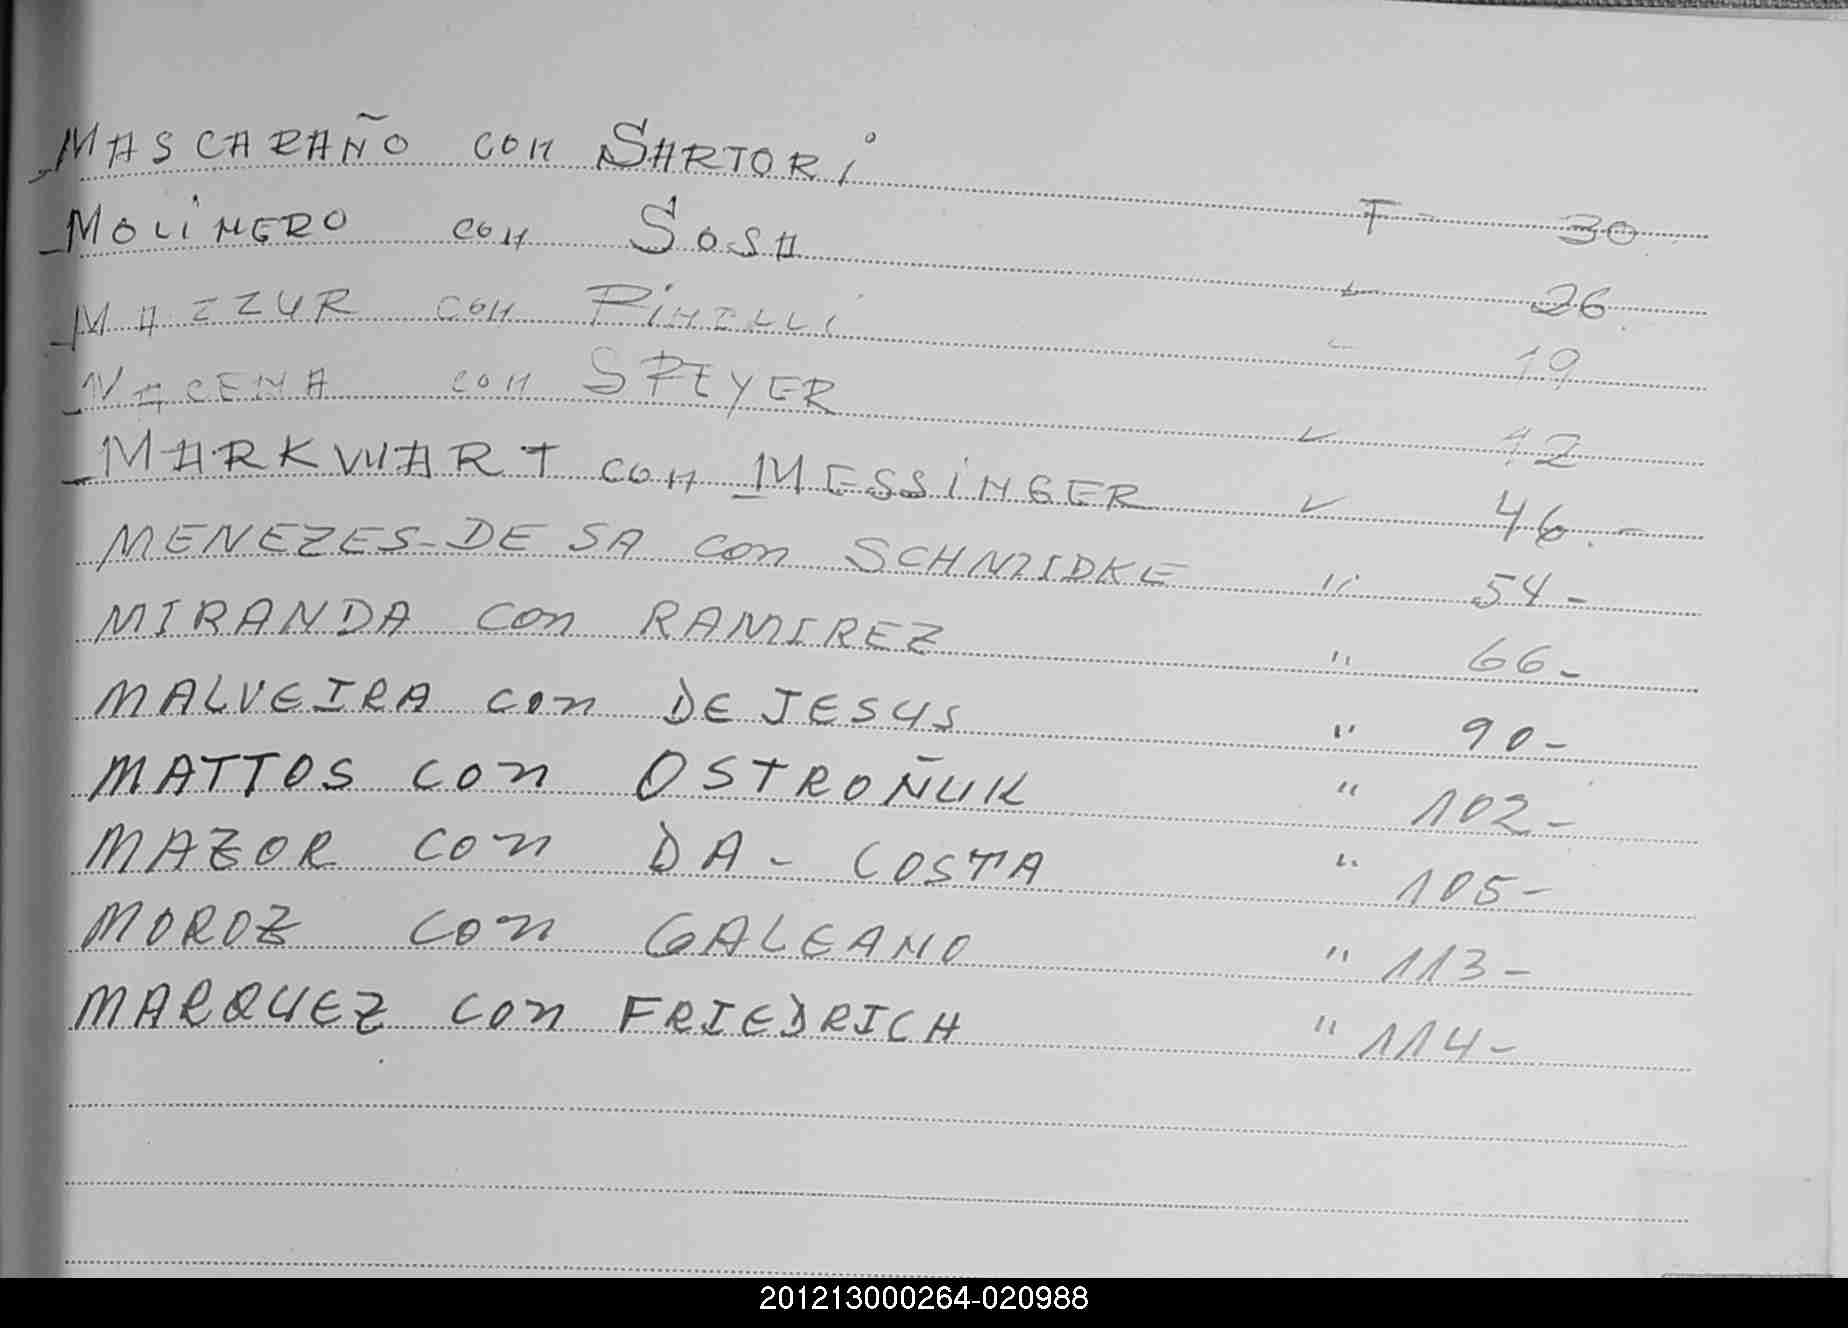 MASCARAÑO con SARTORi F - 30
MOLiNERO con SOSA " 26
MAZZUR con PiNELLi " 19
con SPEYER " 12
MARKWART con MESSiNGER " 46.-
MENEZES-DE SA con SCHMIDKE " 54-
MIRANDA con RAMIREZ " 66-
MALVEIRA con DE JESUS " 90-
MATTOS con OSTROÑUK " 102-
MAZOR con DA-COSTA " 105-
MOROZ con GALEANO " 113-
MARQUEZ con FRIEDRICH " 114-
201213000264-020988